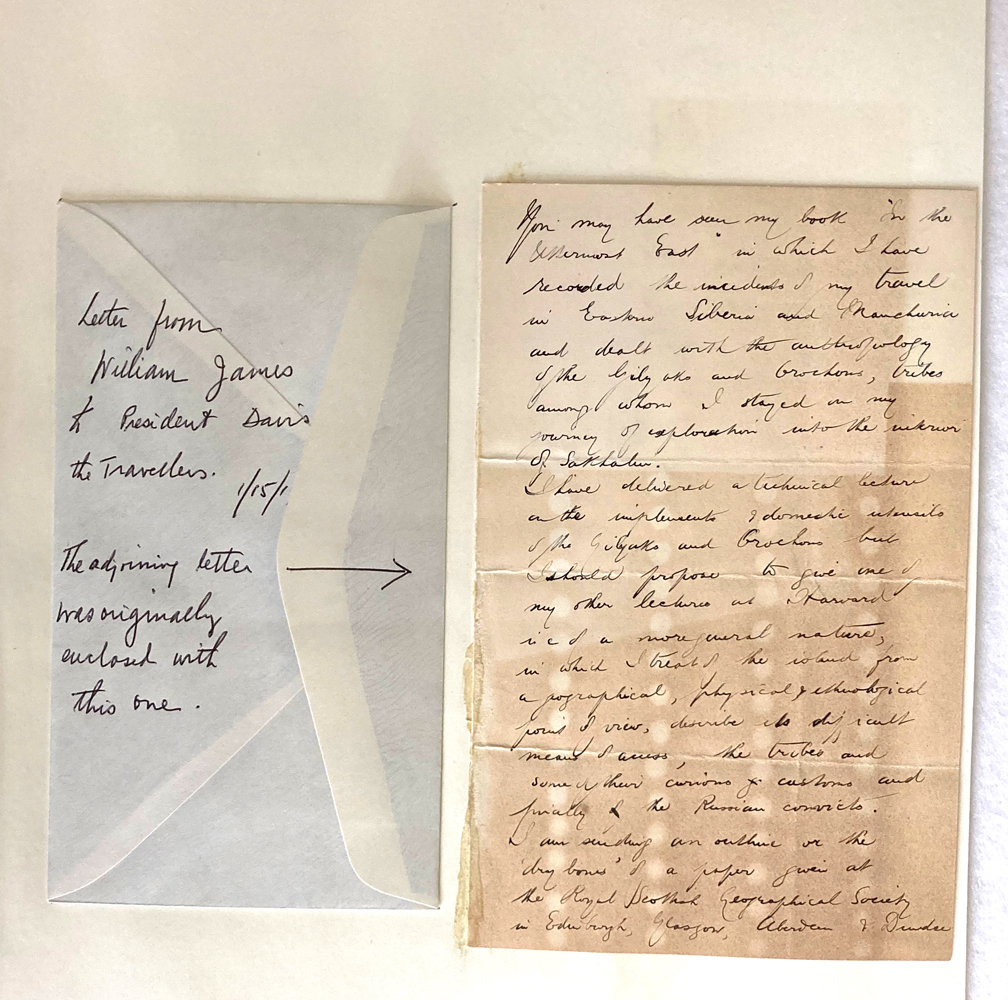 Letter from
William James
to President Davis
the Travellers.
1/15/1
The adjoining letter
was originally
enclosed with
this one.
You may have seen my book "In the
Uttermost East" in which I have
recorded the incidents of my travel
in Eastern Siberia and Manchuria
and dealt with the anthropology
of the Gilyaks and Orochons, tribes
among whom I stayed on my
journey of exploration into the interior
of Sakhalin.
I have delivered a technical lecture
on the implements & domestic utensils
of the Gilyaks and Orochons but
I should propose to give one of
my other lectures at Harvard
i.e. of a more general nature,
in which I treat of the island from
a geographical, physical, & ethnological
point of view, describe its difficult
means of access, the tribes and
some of their curious customs and
finally & the Russian convicts.
I am sending an outline or the
'dry bones' of a paper given at
the Royal Scottish Geographical Society
in Edinburgh, Glasgow, Aberdeen & Dundee